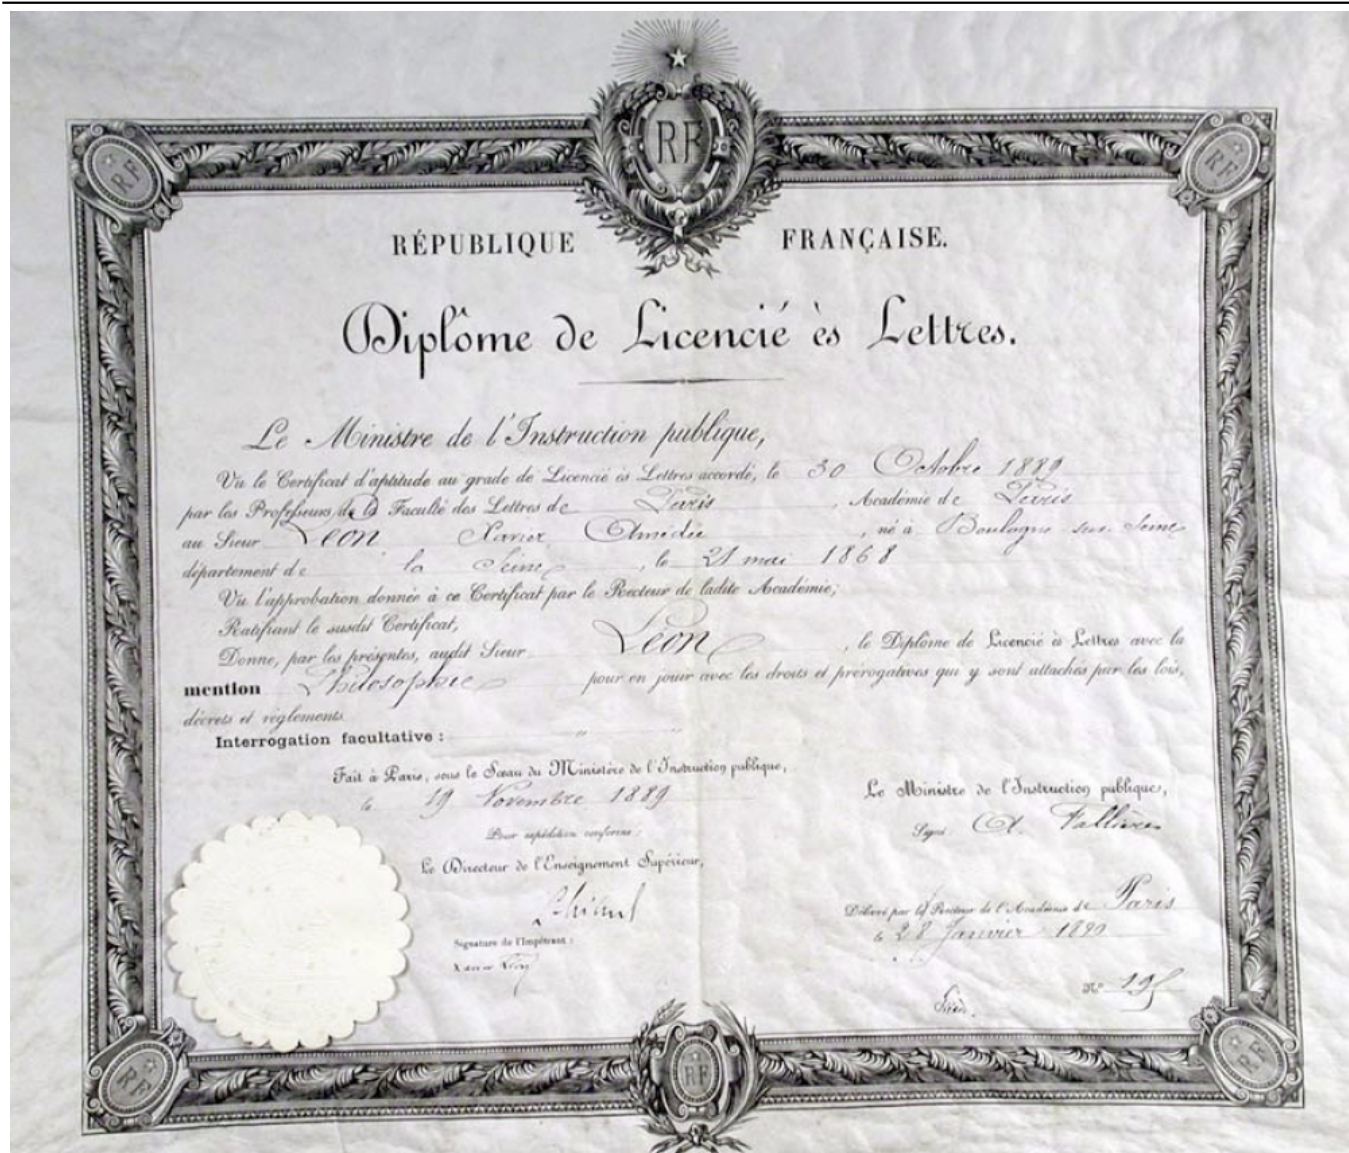 RF
RF
RF
RÉPUBLIQUE FRANÇAISE.
Diplôme de Licencié ès Lettres.
Le Ministre de l'Instruction publique,
Vu le Certificat d'aptitude au grade de Licencié ès Lettres accordé, le 30 Octobre 1889
par les Professeurs de la Faculté des Lettres de Paris, Académie de Paris
au Sieur Léon Xavier Amédée, né à Boulogne sur Seine
département de la Seine, le 21 mai 1868
Vu l'approbation donnée à ce Certificat par le Recteur de ladite Académie;
Ratifiant le susdit Certificat,
Donne, par les présentes, audit Sieur Léon, le Diplôme de Licencié ès Lettres avec la
mention Philosophie pour en jouir avec les droits et prérogatives qui y sont attachés par les lois,
décrets et règlements.
Interrogation facultative : " "
Fait à Paris, sous le Sceau du Ministère de l'Instruction publique,
le 19 Novembre 1889
Pour expédition conforme :
Le Directeur de l'Enseignement Supérieur,
Signature de l'Impétrant :
Xavier Léon
Le Ministre de l'Instruction publique,
Signé A. Fallières
Délivré par le Recteur de l'Académie de Paris
le 28 Janvier 1890
No
RF
RF
RF